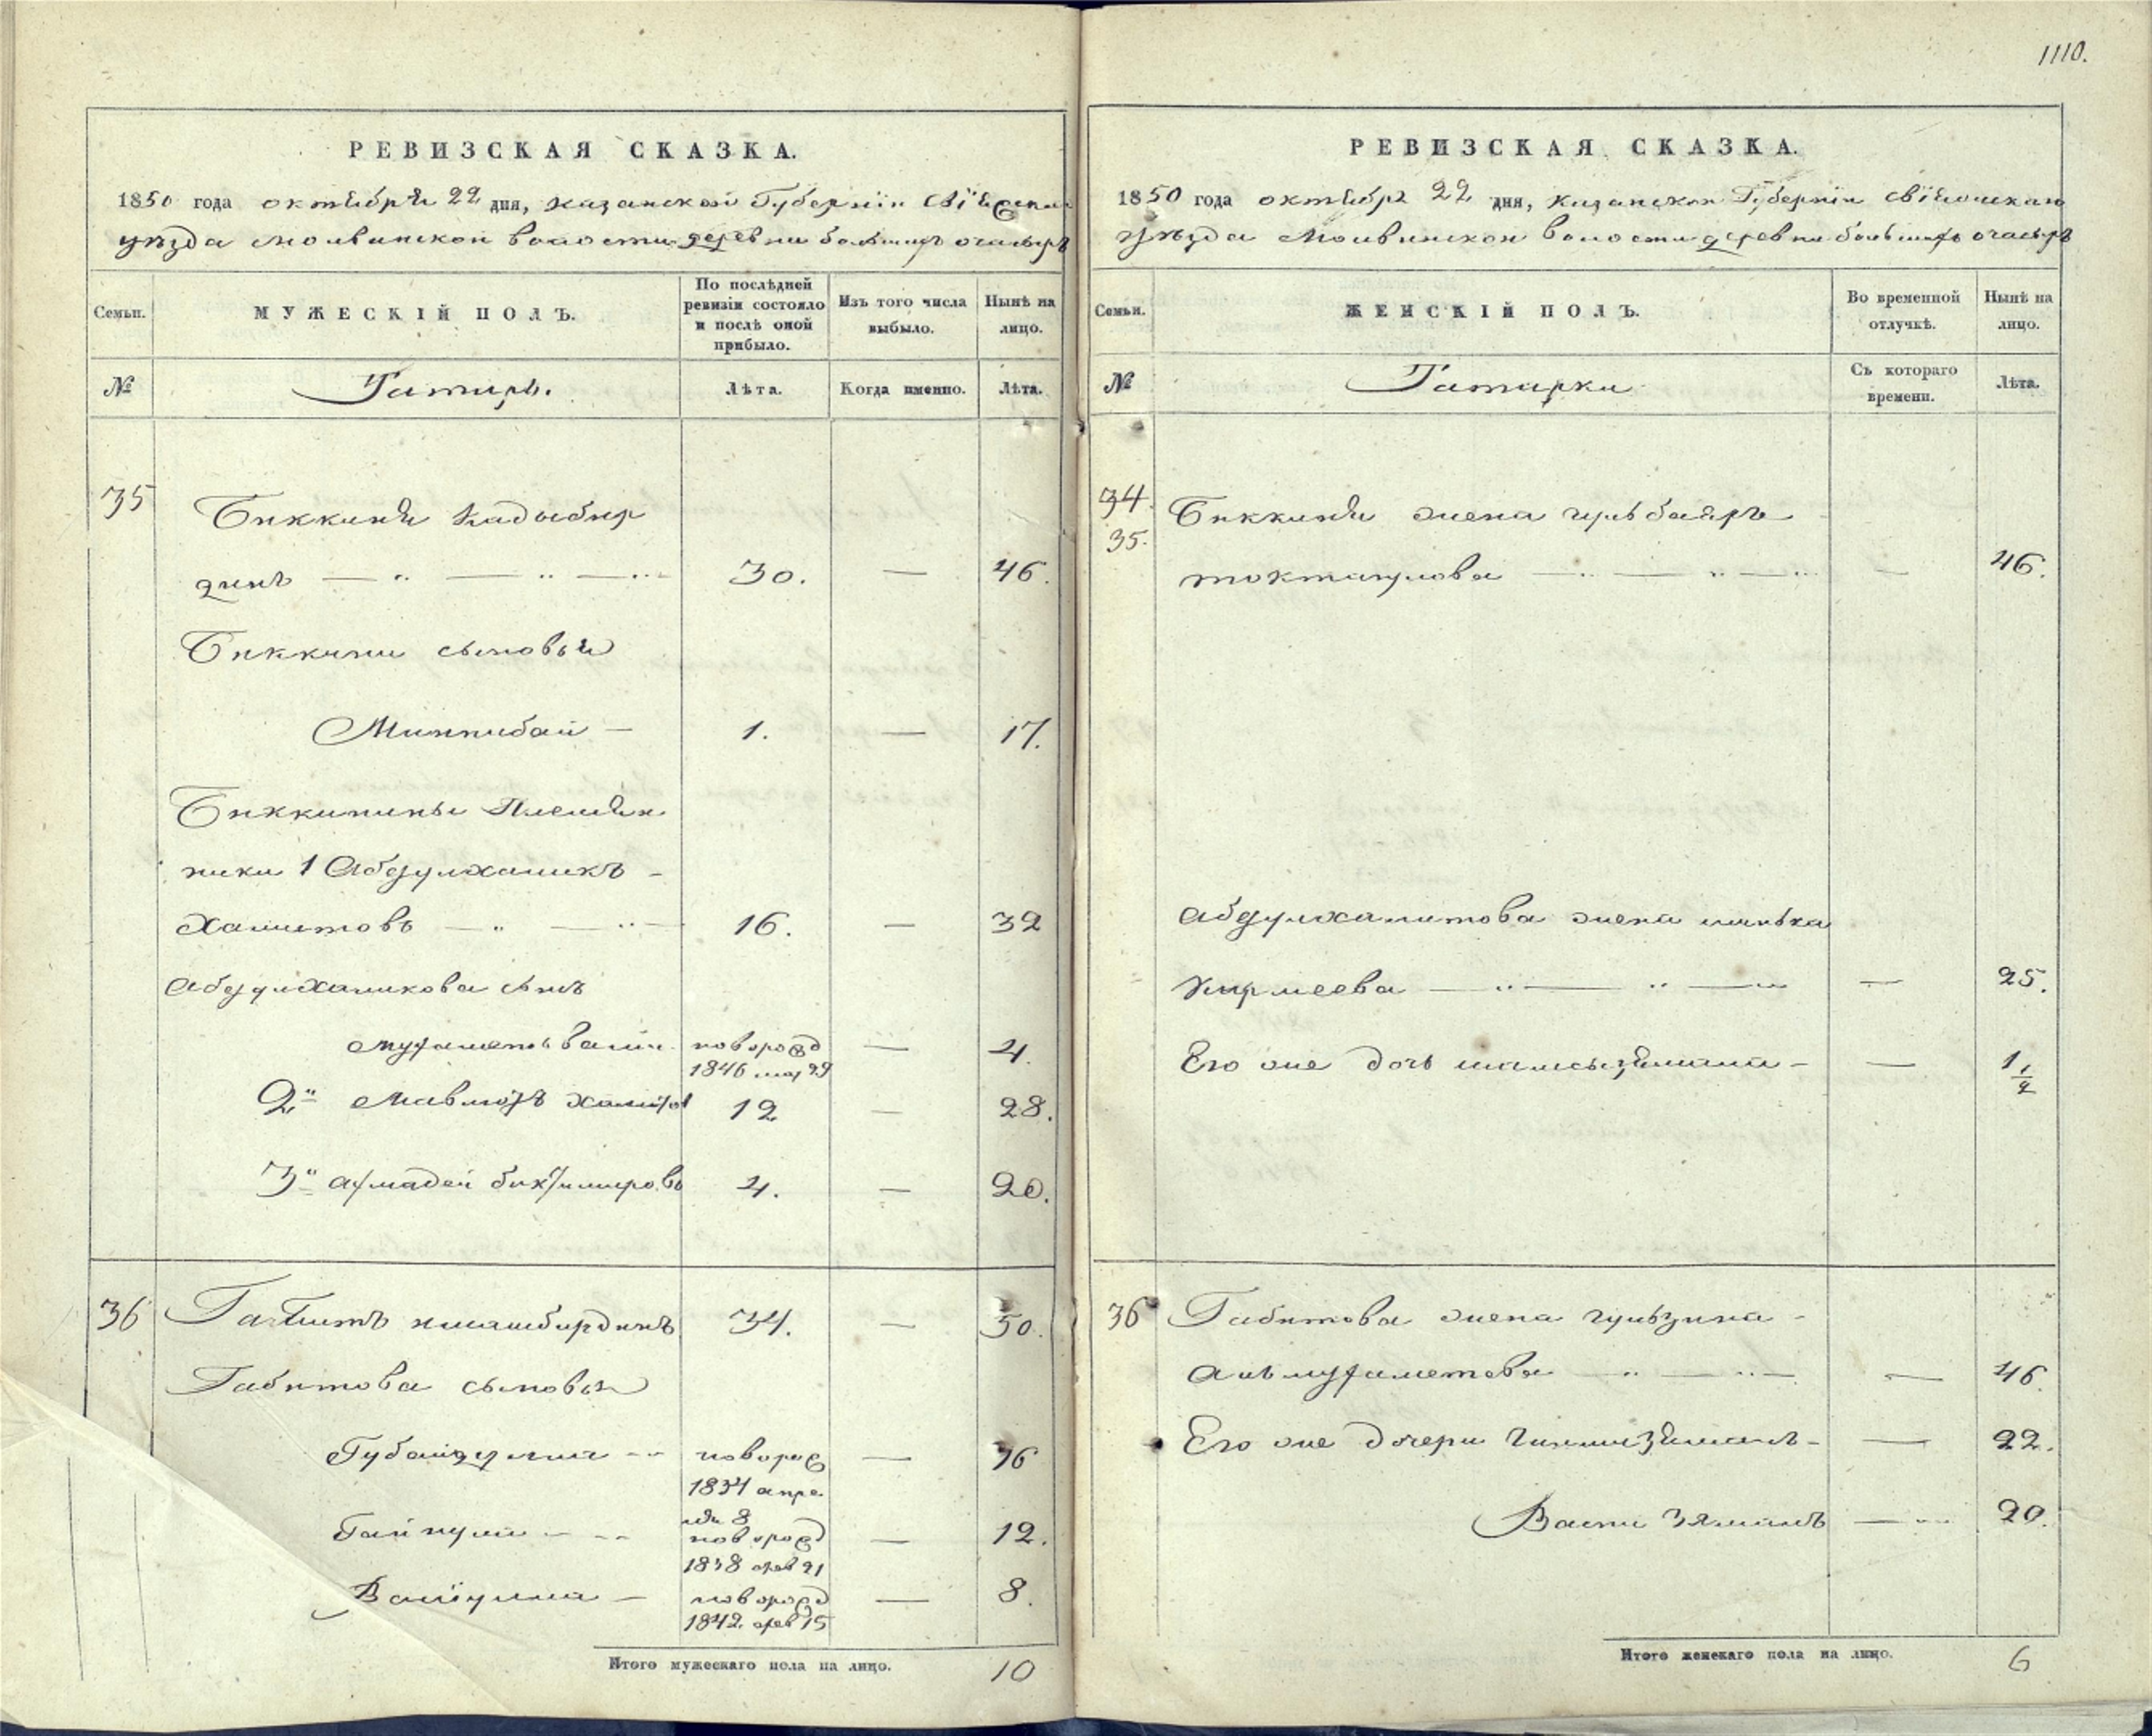 1110.
РЕВИЗСКАЯ СКАЗКА.
1850 года октября 22 дня, Казанской Губернiи Свiяжска
уѣзда Молвинской волости деревни большихъ очасыръ
Семьи.
МУЖЕСКІЙ ПОЛЪ.
По послѣдней
ревизіи состояло
и послѣ оной
прибыло.
Изъ того числа
выбыло.
Нынѣ на
лицо.
№
Татаръ.
Лѣта.
Когда именно.
Лѣта.
35
Биккиня Кадыбир
динъ 30. — 46.
Биккини сыновья
Миннибай — 1. — 17.
Биккинины Племян
ники 1 Абдулхаликъ
Хамитовъ 16. — 32
Абдулхаликова сынъ
Мухаметьвали новорожд — 4.
1846 мая 29
2й Хамитов 12 — 28.
3й Ахмадей биктимировъ 4. — 20.
36 Габитъ ишашбирдинъ 34. — 50.
Габитова сыновья
Губайдулла новорож — 16
1834 апре
ля 8
Гайнулла новорожд — 12.
1838 фев 21
Валиулла — новорожд — 8.
1842 фев 15
Итого мужескаго пола на лицо. 10
РЕВИЗСКАЯ СКАЗКА.
1850 года октября 22 дня, Казанской Губернiи Свiяжскаго
уѣзда Молвинской волости деревни большихъ очасыръ
Семьи.
ЖЕНСКІЙ ПОЛЪ.
Во временной
отлучкѣ.
Нынѣ на
лицо.
№
Татарки
Съ котораго
времени.
Лѣта.
34.
35.
Биккиня жена гульбаяръ
токтагулова — 46.
Абдулхамитова жена
— 25.
Его же дочь шамсызямиля — — 1 1/2
36 Габитова жена гульзина
Альмухаметова — 46.
Его же дочери — 22.
Васпи Зямалъ — 20.
Итого женскаго пола на лицо. 6